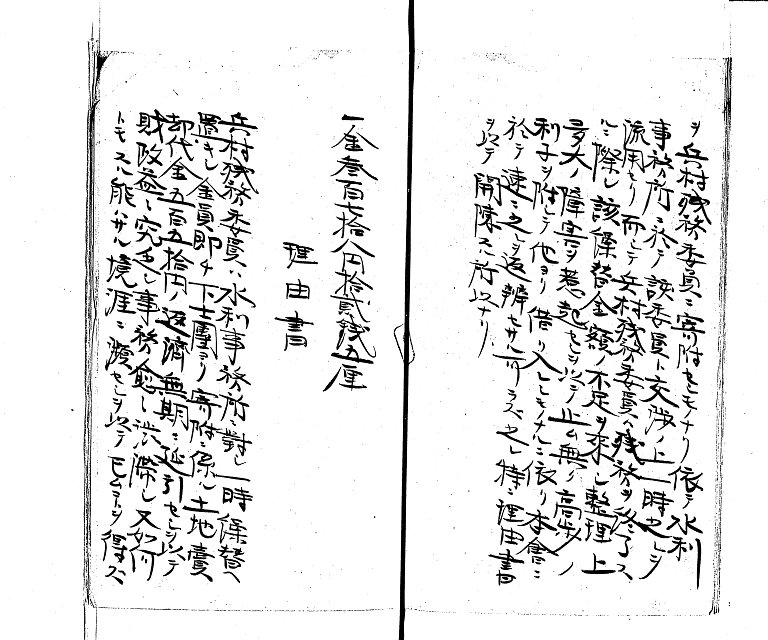 ヲ兵村残務委員ニ寄附セシモノナリ依テ水利
事務所ニ於テ該委員ト交渉ノ上一時之レヲ
流用セリ而シテ兵村残務委員ハ残務ヲ終了ス
ルニ際シ該繰替金額ノ不足ヲ来シ整理上
多大ノ障害ヲ惹起セシヲ以テ止ム無ク高歩ノ
利子ヲ附シテ他ヨリ借リ入レシモノナルニ依リ本會ニ
於テ速ニ之レヲ返辨セサル可ラズ之レ特ニ理由書
ヲ以テ開陳スル所以ナリ
一金叁百七拾八円拾貳銭五厘
理由書
兵村残務委員ハ水利事務所ニ對シ一時繰替ヘ
置キシ金員即チ下士團ヨリ寄附ニ係ル土地賣
却代金五百五拾円ノ返濟無期ニ延引セシヲ以テ
財政益々究乏シ事務愈々渋滞シ又如何
トモスル能ハサル境涯ニ瀕セシヲ以テ止ムヲ得ス